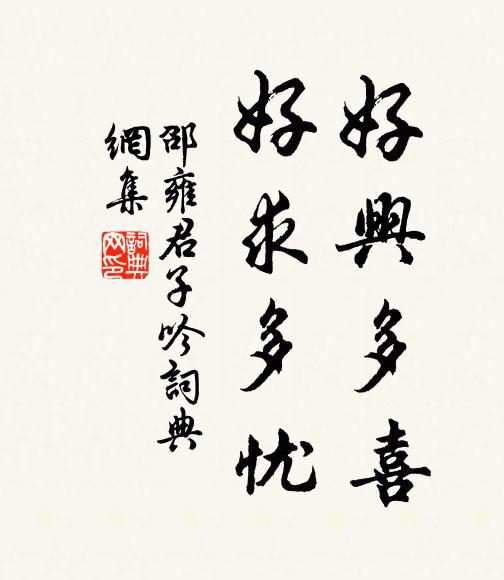 好與多喜
好求多忧
邵雍君子吟詞典
網集
詞典
网印